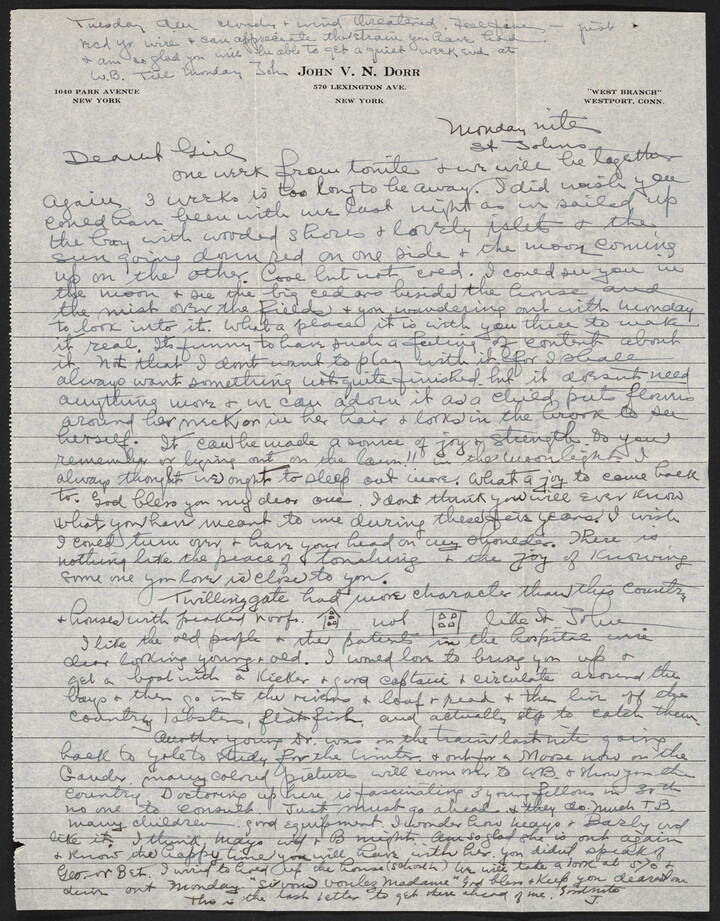 Tuesday clouds & wind threatened. Feel fine — just
recd yr wire & can appreciate the strain you have had
& am so glad you will be able to get a quiet week end at
W.B. Till Monday John
JOHN V. N. DORR
1040 PARK AVENUE
NEW YORK
570 LEXINGTON AVE.
NEW YORK
"WEST BRANCH"
WESTPORT, CONN.
Monday nite
St Johns
Dearest Girl
one week from tonite & we will be together
again. 3 weeks is too long to be away. I did wish you
could have been with me last night as we sailed up
the bay with wooded shores & lovely islets & the
sun going down red on one side & the moon coming
up on the other. Cool but not cold. I could see you in
the moon & see the big cedars beside the house and
the mist over the fields & you wandering out with Monday
to look into it. What a place it is with you there to make
it real. Its funny to have such a feeling of content about
it. Not that I dont want to play with it for I shall
always want something not quite finished but it doesnt need
anything more & we can adorn it as a child puts flowers
around her neck or in her hair & looks in the brook to see
herself. It can be made a source of joy & strength. Do you
remember lying out on the lawn!! in the moonlight. I
always thought we ought to sleep out more. What a joy to come back
to. God bless you my dear one. I dont think you will ever know
what you have meant to me during these five years. I wish
I could turn over & have your head on my shoulder. There is
nothing like the peace of touching & the joy of knowing
some one you love is close to you.
Twillingate had more character than this country
& houses with peaked roofs. not like St Johns
I like the old people & the patients in the hospital were
dear looking young & old. I would love to bring you up &
get a boat with a kicker & good captain & circulate around the
bays & then go into the rivers & loaf & read & then live off the
country lobsters, flatfish, and actually stop to catch them.
Another young Dr. was on the train last nite going
back to Yale to study for the winter & out for a Moose now on the
Gander. Many colored pictures will come over to W.B. & show you the
country. Doctoring up here is fascinating 3 young fellows in
no one to consult. Just must go ahead & they do. Much TB
many children good equipment. I wonder how Mays & Barby wd
like it. I think Mays wd & B might. Am so glad she is out again
& know the happy time you will have with her. You didnt speak of
Geo. or Bet. I wired to hold up the house We will take a look at
down out Monday. Si vous voulez Madame" God bless & keep you dearest one
This is the last letter to get there ahead of me. Goodnite
J.